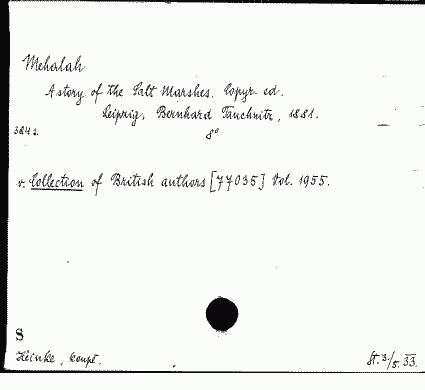 Mehalah
A story of the Salt Marshes. Copyr. ed.
Leipzig, Bernhard Tauchnitz, 1881.
384 s. 8°
v. Collection of British authors [77035] Vol. 1955.
S
Heinke, koupě. St. 3/5. 33.